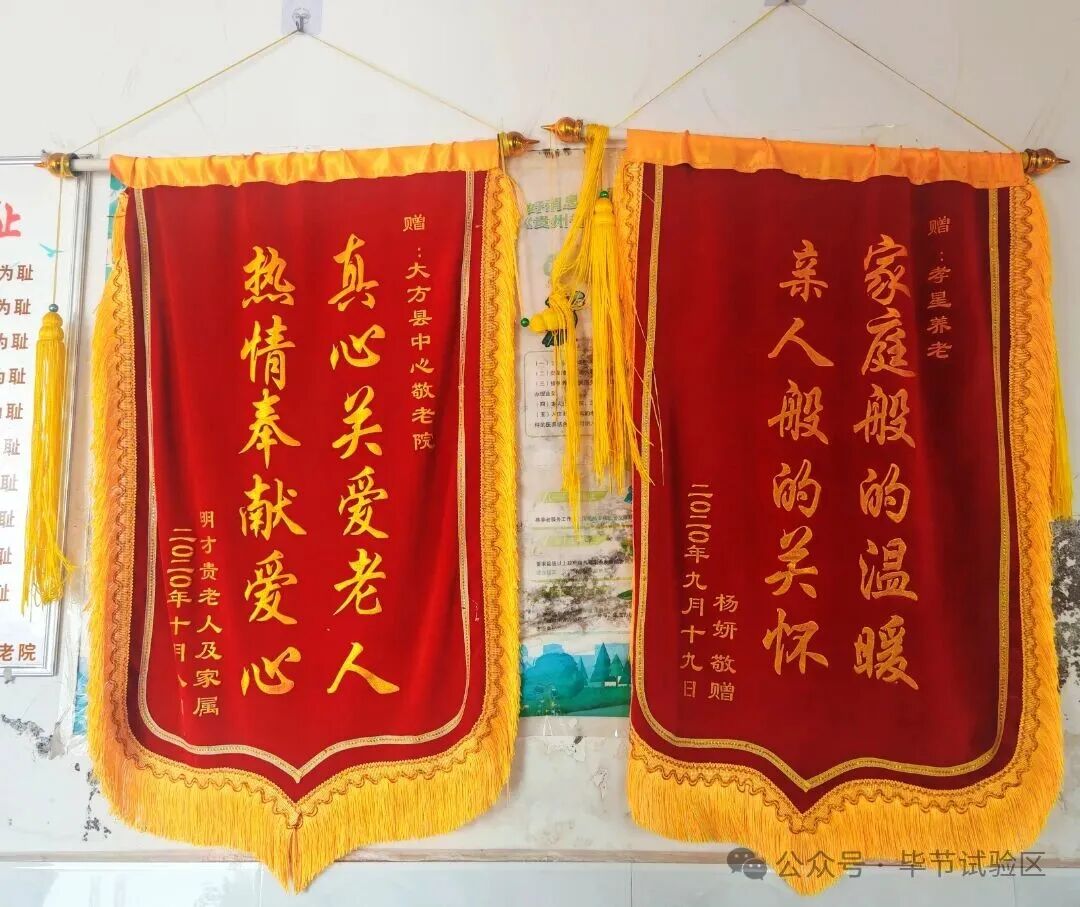 赠：大方县中心敬老院
真心关爱老人
热情奉献爱心
明才贵老人及家属
二〇二〇年十月八
赠：孝星养老
家庭般的温暖
亲人般的关怀
杨妍敬赠
二〇二〇年九月十九日
止
为耻
为耻
为耻
为耻
为耻
耻
耻
耻
耻
耻
老院
公众号·毕节试验区